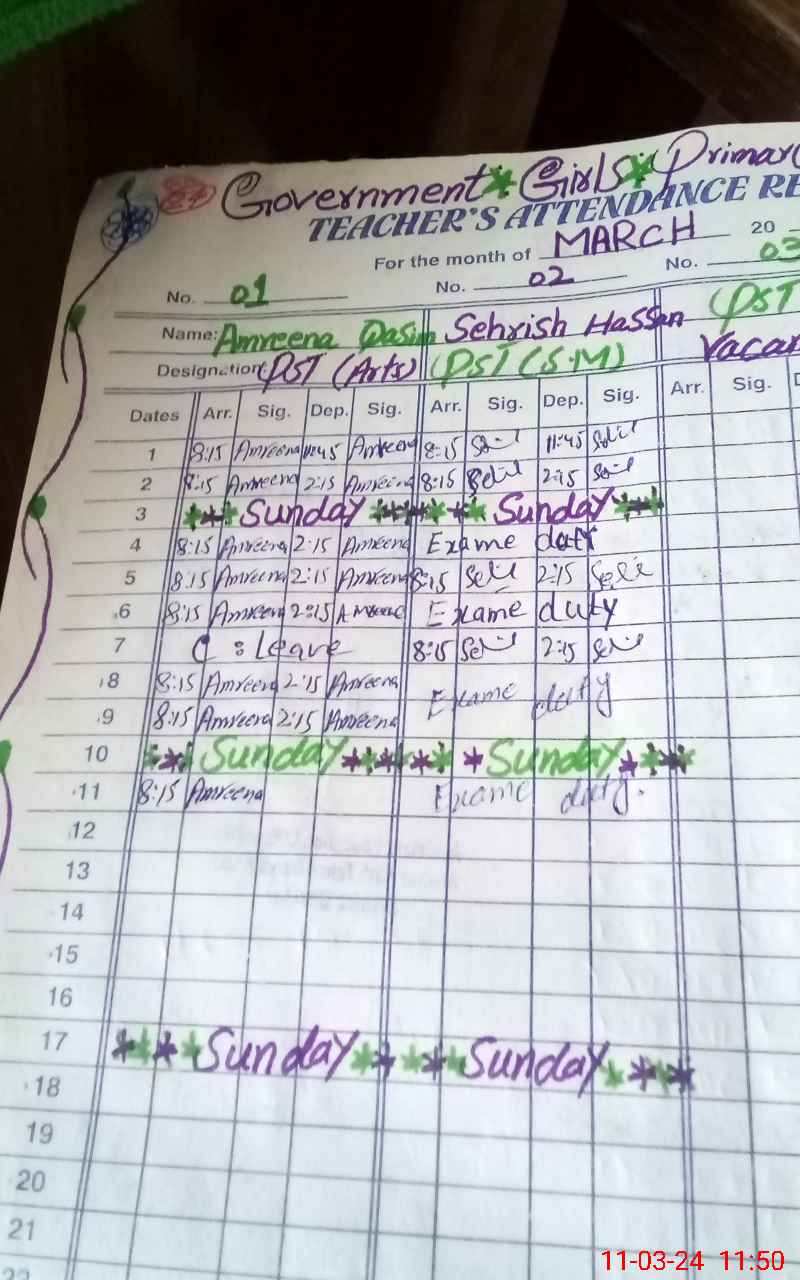 Government Girls Primar
TEACHER'S ATTENDANCE RE
For the month of MARCH 20
No. 01 No. 02 No. 03
Name: Amreena Qasim Sehrish Hassan PST
Designation: PST (Arts) PST (S.M) Vacan
Dates Arr. Sig. Dep. Sig. Arr. Sig. Dep. Sig. Arr. Sig. D
1 8:15 Amreena 11:45 Amreena 8:15 11:45
2 8:15 Amreena 2:15 Amreena 8:15 2:15
3 Sunday Sunday
4 8:15 Amreena 2:15 Amreena Exame duty
5 8:15 Amreena 2:15 Amreena 8:15 2:15
6 8:15 Amreena 2:15 Amreena Exame duty
7 C:leave 8:15 2:15
8 8:15 Amreena 2:15 Amreena Exame duty
9 8:15 Amreena 2:15 Amreena
10 Sunday Sunday
11 8:15 Amreena Exame duty.
12
13
14
15
16
17 Sunday Sunday
18
19
20
21
22
11-03-24 11:50